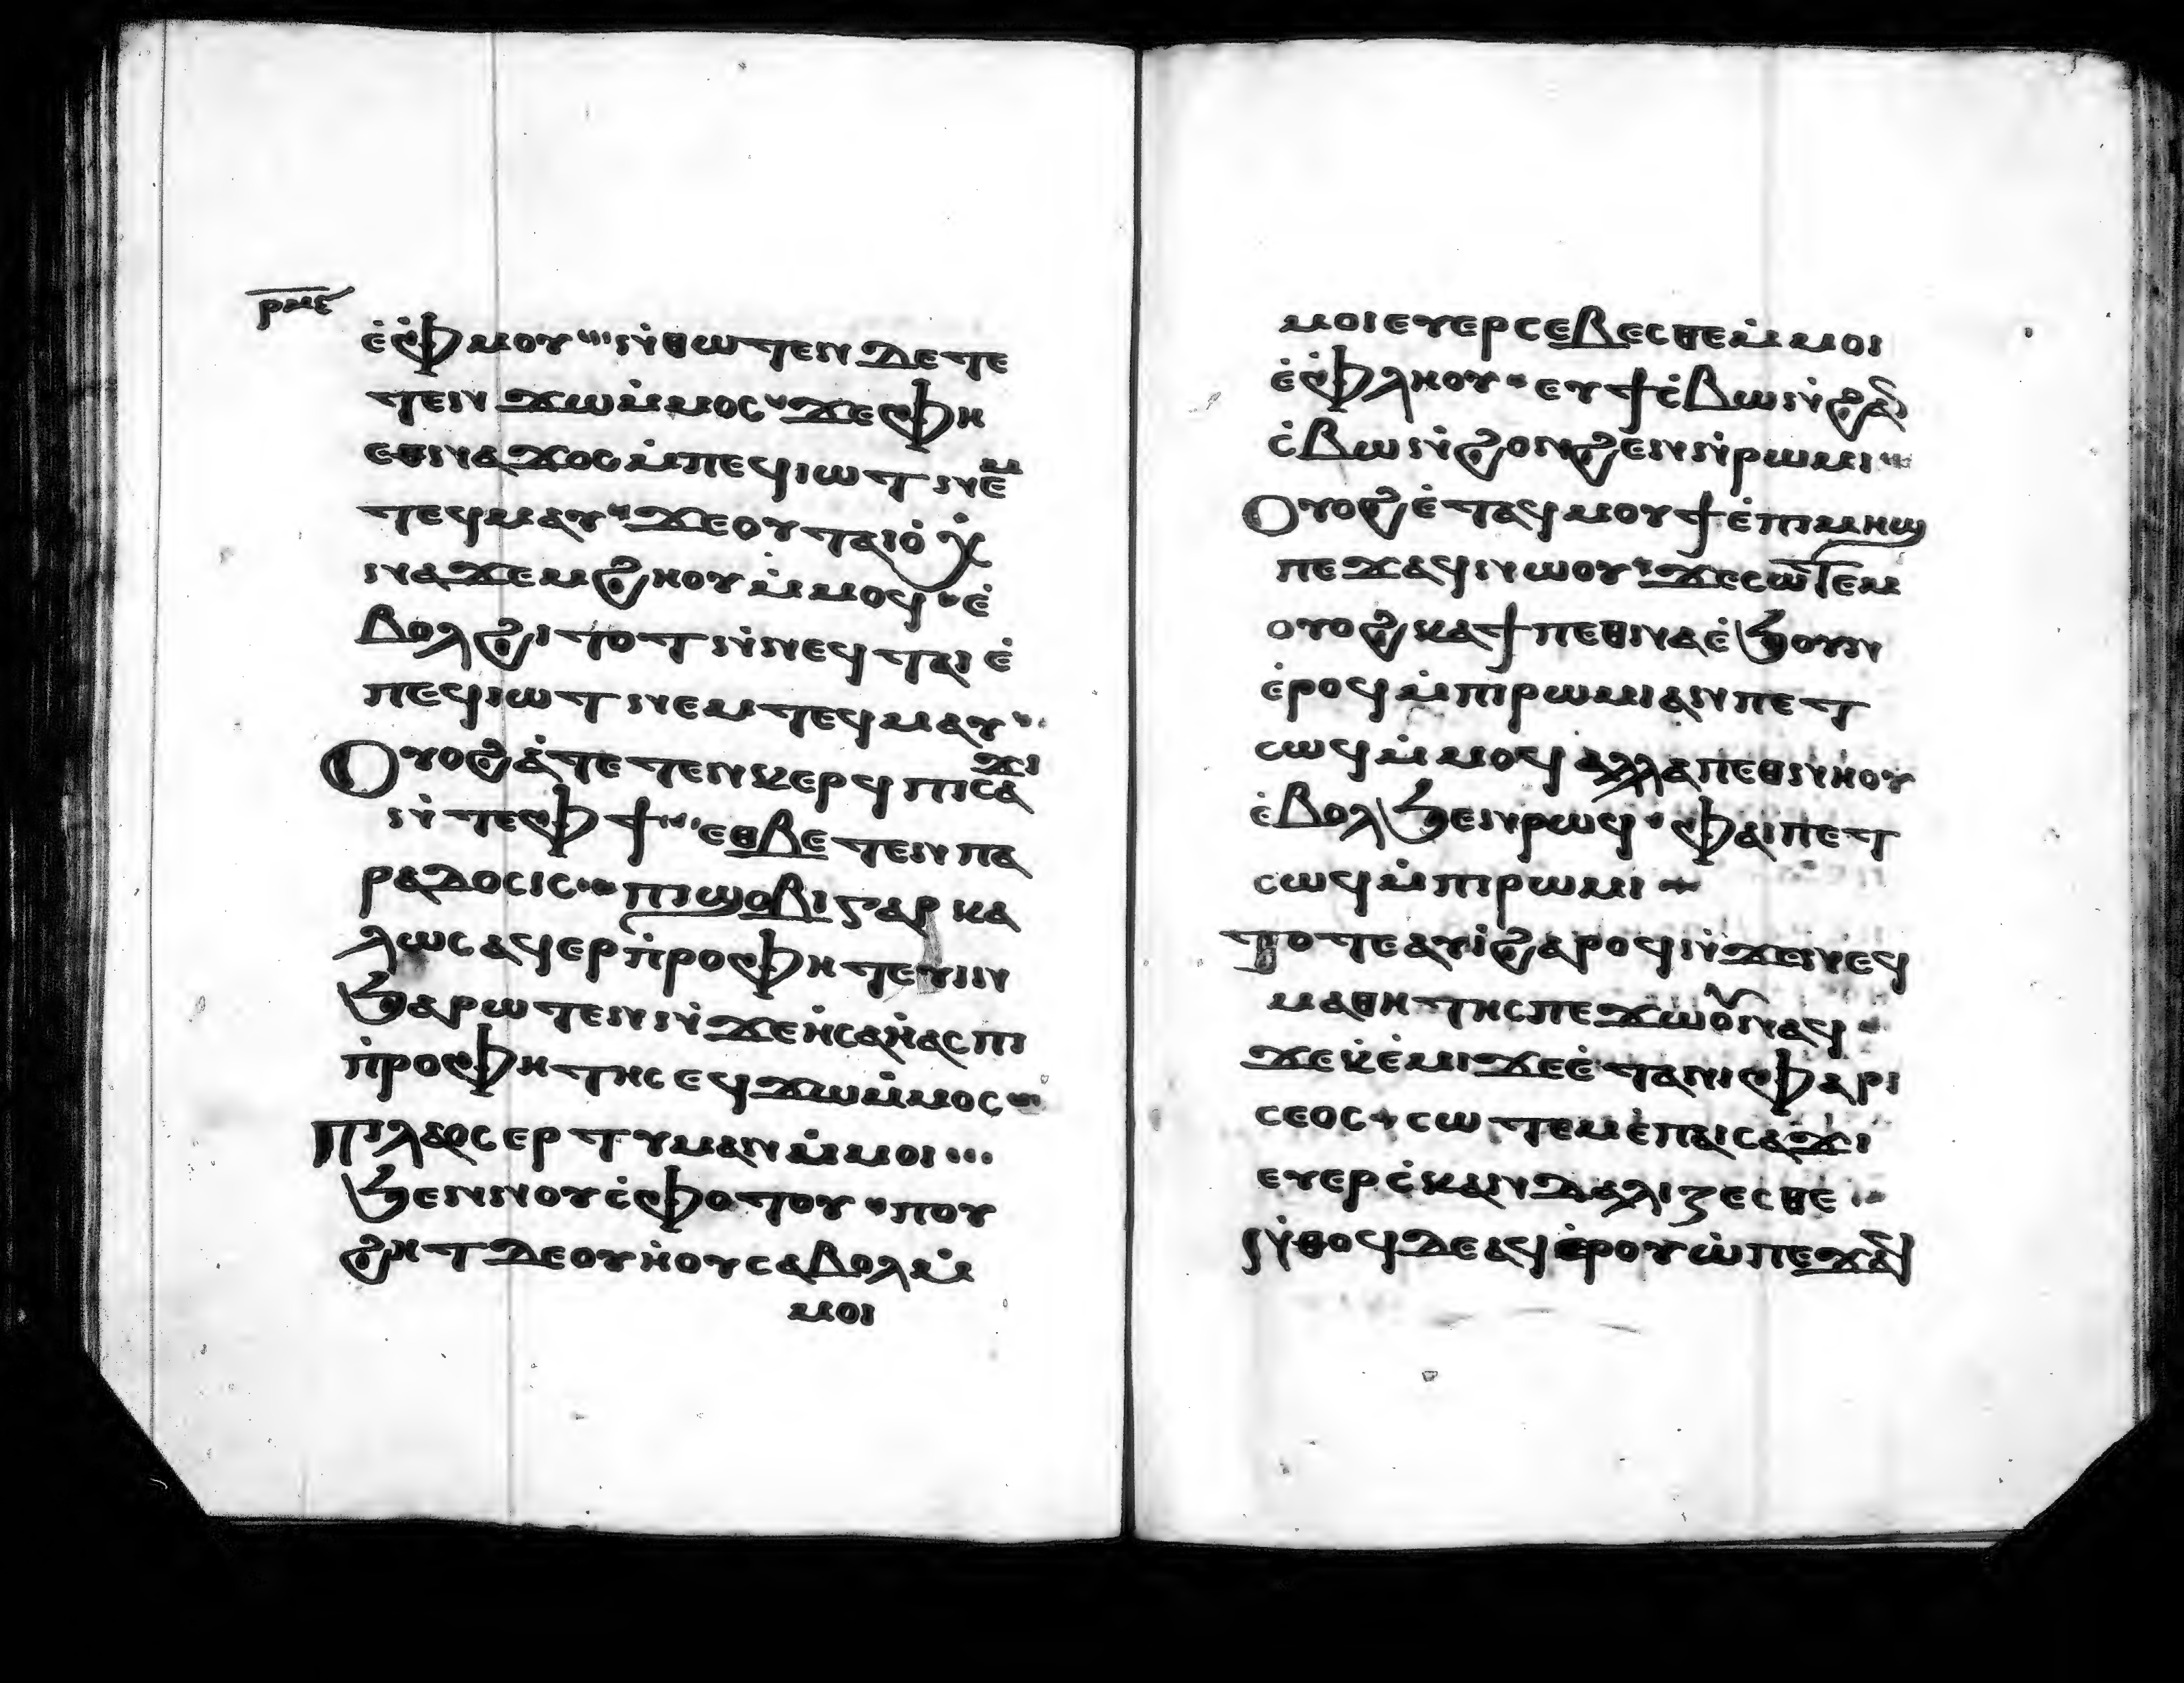 ⲣⲙⲉ
ⲉ̇ⲫ̇ⲙⲟⲩ ⲛ̇ⲑⲱⲧⲉⲛ ⲇⲉ ⲧⲉ
ⲧⲉⲛϫⲱⲙ̇ⲙⲟⲥ ϫⲉ ⲫⲏ
ⲉⲑⲛⲁϫⲟⲥ ⲙ̇ⲡⲉϥⲓⲱⲧ ⲛⲉⲙ
ⲧⲉϥⲙⲁⲩ ϫⲉ ⲟⲩⲧⲁⲓⲟ̇ ⲭ̇
ⲛⲁϫⲉⲙϩⲏⲟⲩ ⲙ̇ⲙⲟϥ ⲉ̇
ⲃⲟⲗϩⲓⲧⲟⲧ ⲛ̇ⲛⲉϥⲧⲁⲓⲉ̇
ⲡⲉϥⲓⲱⲧ ⲛⲉⲙ ⲧⲉϥⲙⲁⲩ
Ⲟⲩⲟϩ ⲁ̇ⲧⲉⲧⲉⲛⲕⲉⲣϥ ⲡⲓⲥⲁϫⲓ
ⲛ̇ⲧⲉ ⲫϯ ⲉⲑⲃⲉⲧⲉⲛⲡⲁ
ⲣⲁⲇⲟⲥⲓⲥ ⲡⲓϣⲟⲃⲓ ⲅⲁⲣ ⲕⲁ
ⲗⲱⲥ ⲁϥⲉⲣⲡ̇ⲣⲟⲫⲏⲧⲉⲩⲓⲛ
ϧⲁⲣⲱⲧⲉⲛ ⲛ̇ϫⲉ ⲏ̇ⲥⲁⲏ̇ⲁⲥ ⲡⲓ
ⲡ̇ⲣⲟⲫⲏⲧⲏⲥ ⲉϥϫⲱⲙ̇ⲙⲟⲥ
ⲡⲓⲗⲁⲟⲥ ⲉⲣⲧⲩⲙⲁⲛ ⲙ̇ⲙⲟⲓ
ϧⲉⲛⲛⲟⲩⲥ̇ⲫⲟⲧⲟⲩ ⲡⲟⲩ
ϩⲏⲧ ⲇⲉ ⲟⲩⲏ̇ⲟⲩ ⲥⲁⲃⲟⲗ ⲙ̇
ⲙⲟⲓ
ⲙⲟⲓ ⲉⲩⲉⲣⲥⲉⲃⲉⲥⲑⲉ ⲙ̇ⲙⲟⲓ
ⲉ̇ⲫ̇ⲗⲏⲟⲩ ⲉⲩϯⲥ̇ⲃⲱ ⲛ̇ϩⲁⲛ
ⲥ̇ⲃⲱ ⲛ̇ϩⲟⲛϩⲉⲛ ⲛ̇ⲣⲱⲙⲓ
Ⲟⲩⲟϩ ⲉ̇ⲧⲁϥⲙⲟⲩϯ ⲉ̇ⲡⲓⲙⲏϣ
ⲡⲉϫⲁϥ ⲛⲱⲟⲩ ϫⲉ ⲥⲱⲧⲉⲙ
ⲟⲩⲟϩ ⲕⲁϯ ⲡⲉⲑⲛⲁⲉ̇ϧⲟⲩⲛ
ⲉ̇ⲣⲟϥ ⲙ̇ⲡⲓⲣⲱⲙⲓ ⲁⲛ ⲡⲉⲧ
ⲥⲱϥ ⲙ̇ⲙⲟϥ ⲁⲗⲗⲁ ⲡⲉⲑⲛⲏⲟⲩ
ⲉ̇ⲃⲟⲗϧⲉⲛ ⲣⲱϥ ⲫⲁⲓ ⲡⲉⲧ
ⲥⲱϥ ⲙ̇ⲡⲓⲣⲱⲙⲓ
ⲧⲟⲧⲉ ⲁⲩⲓ̇ ϩⲁⲣⲟϥ ⲛ̇ϫⲉ ⲛⲉϥ
ⲙⲁⲑⲏⲧⲏⲥ ⲡⲉϫⲱⲟⲩ ⲛⲁϥ
ϫⲉ ⲕ̇ⲉ̇ⲙⲓ ϫⲉ ⲉ̇ⲧⲁ ⲛⲓⲫⲁⲣⲓ
ⲥⲉⲟⲥ ⲥⲱⲧⲉⲙ ⲉ̇ⲡⲁⲓⲥⲁϫⲓ
ⲉⲩⲉⲣⲥ̇ⲕⲁⲛⲇⲁⲗⲓⲍⲉⲥⲑⲉ
ⲛ̇ⲑⲟϥ ⲇⲉ ⲁϥⲉⲣⲟⲩⲱ̇ ⲡⲉϫⲁϥ